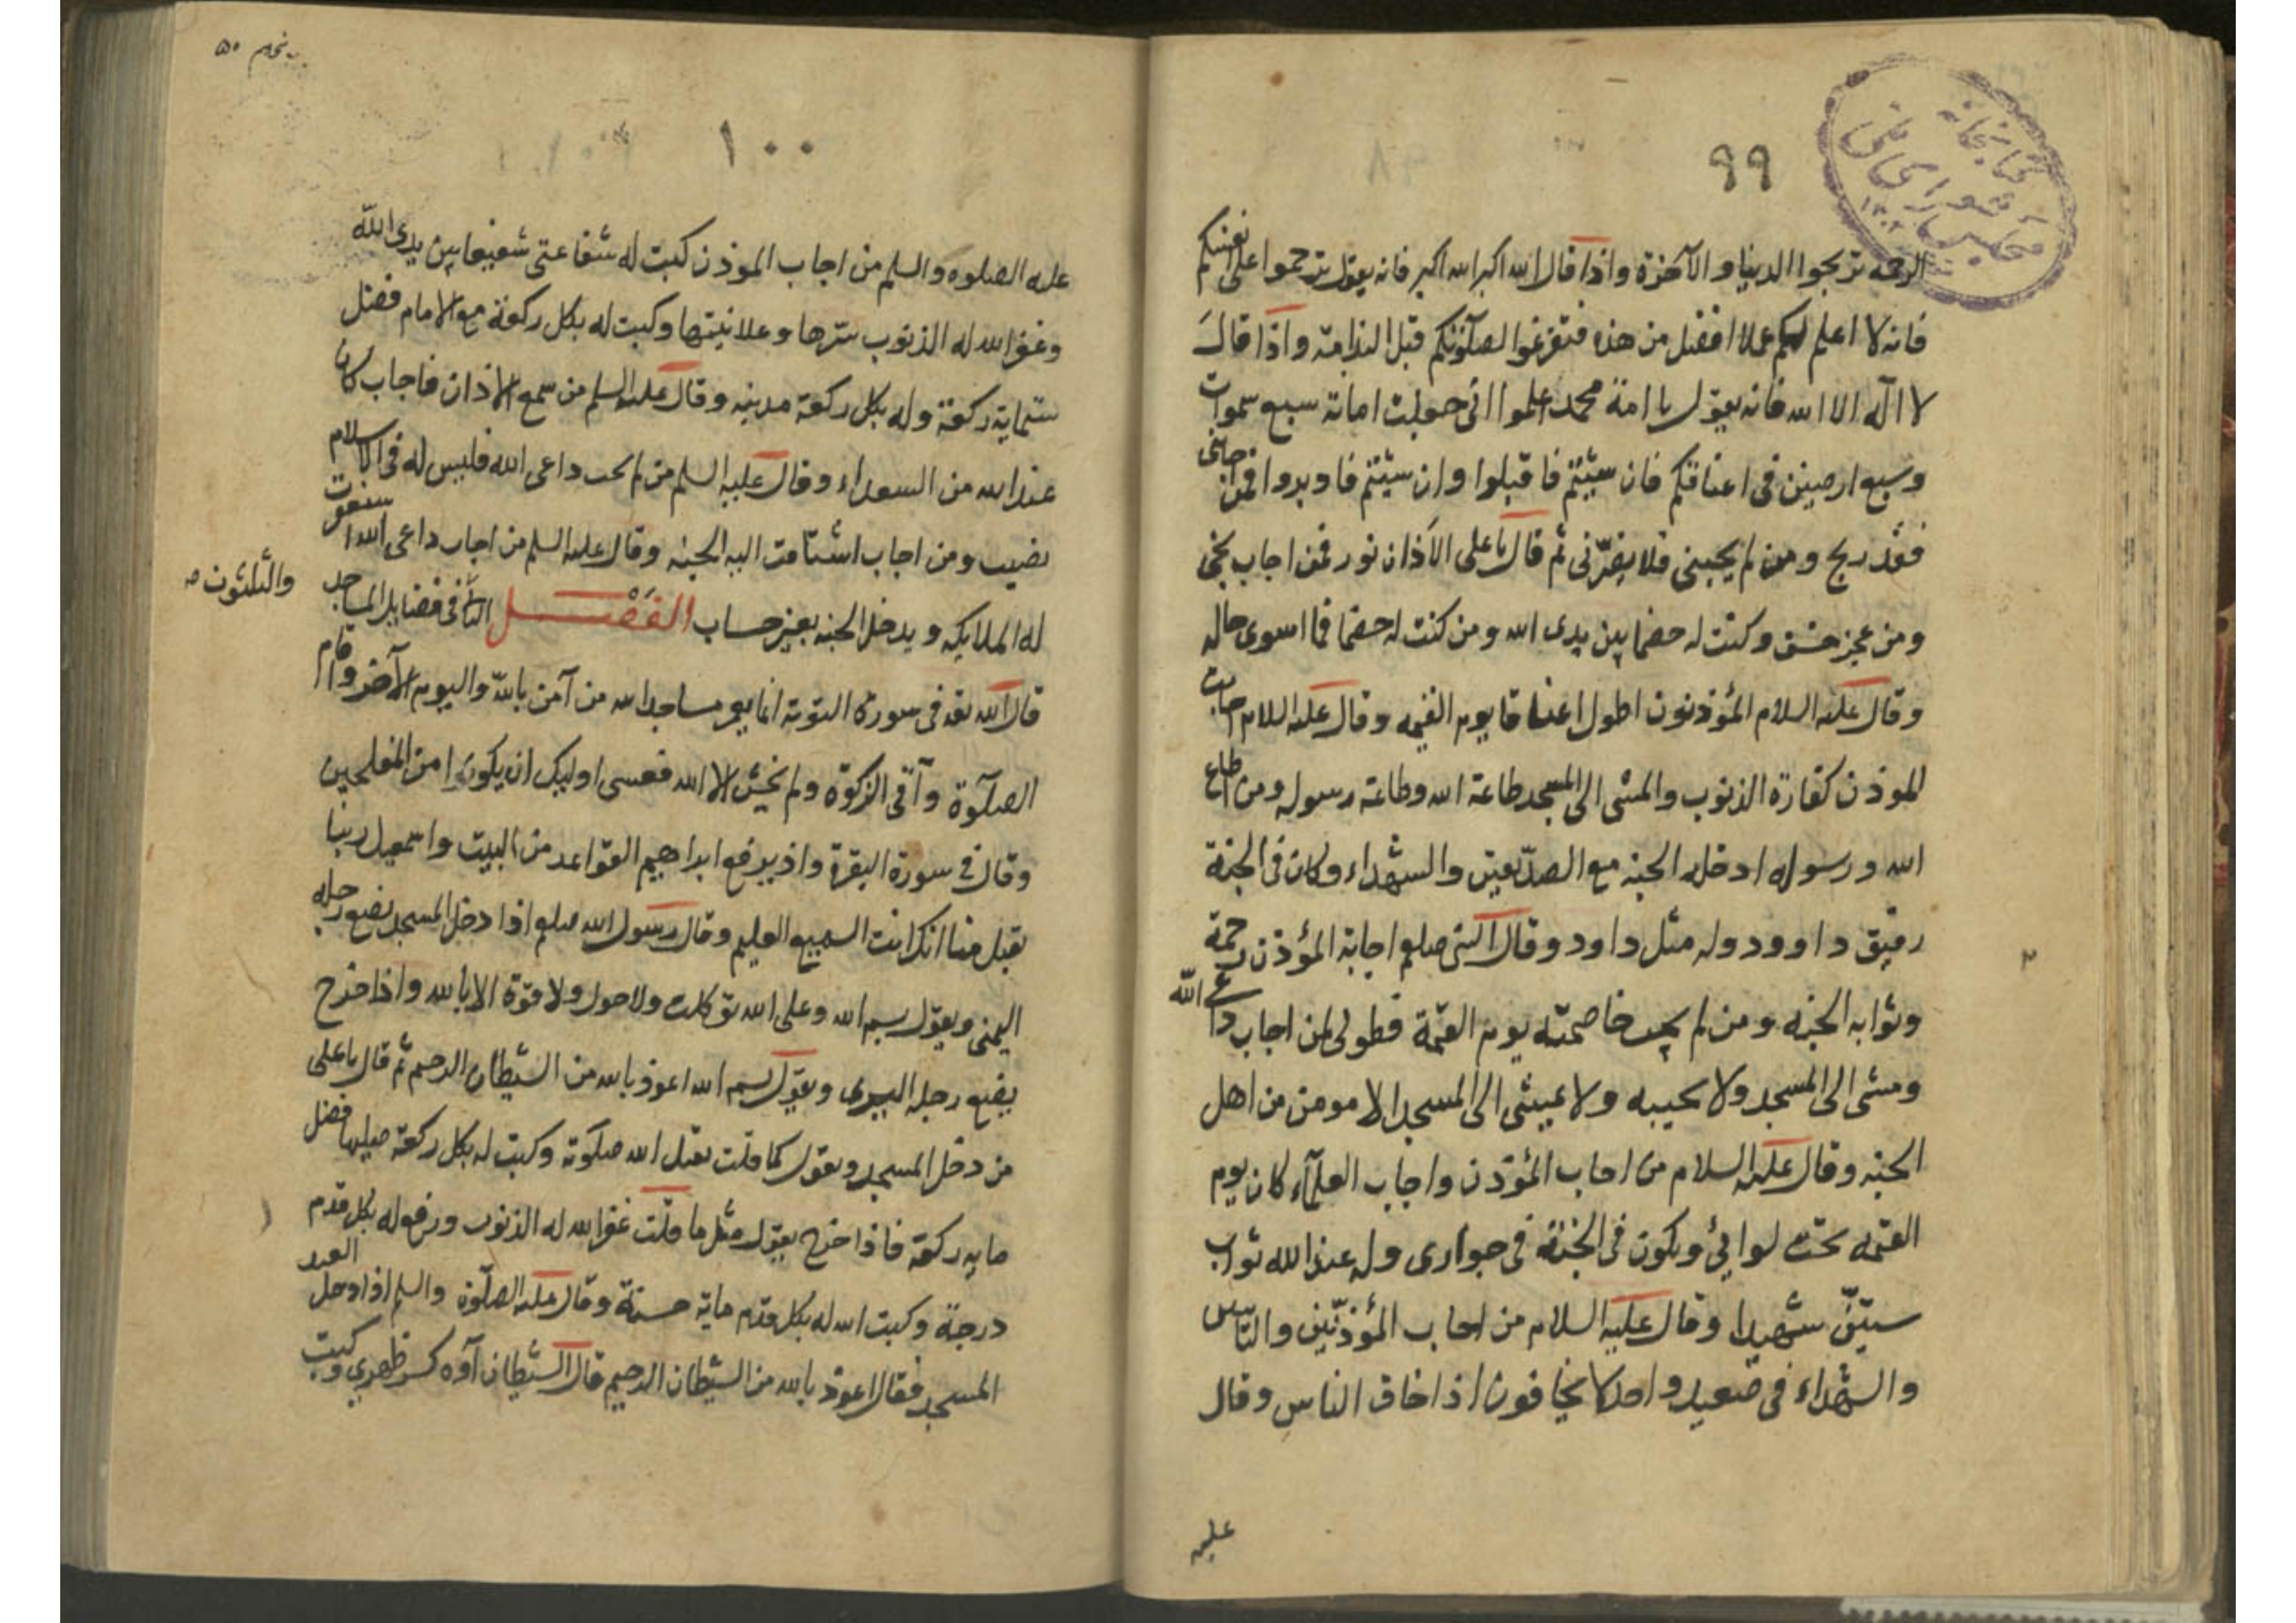 كتابخانه
مجلس شورای ملی
۹۹
الرحمة تربحوا الدنيا و الآخرة واذا قال الله اكبر الله اكبر فانه يقول ترحموا على انفسكم
فانه لا اعلم لكم عملا افضل من هذه فتفرغوا لصلوتكم قبل الندامة واذا قال
لا اله الا الله فانه يقول يا امة محمد اعلموا انى جعلت امانة سبع سموات
وسبع ارضين فى اعناقكم فان شيتم فاقبلوا وان شيتم فادبروا فمن اجابنى
فقد ربح ومن لم يجبنى فلا يضرّنى ثم قال يا على الاذان نور فمن اجاب نجى
ومن عجز خسف وكنت له خصما بين يدى الله ومن كنت له خصما فما اسوى حاله
وقال عليه السلام المؤذنون اطول اعناقا يوم القيمه وقال عليه السلام اجابت
الموذن كفارة الذنوب والمشى الى المسجد طاعة الله وطاعة رسوله ومن اطاع
الله و رسوله ادخله الجنه مع الصدّيقين والشهداء وكان فى الجنة
رفيق داوود وله مثل داود وقال النبى صلعم اجابة المؤذن رحمة
وثوابه الجنه ومن لم يجب خاصمته يوم القيمة فطوبى لمن اجاب داعى الله
ومشى الى المسجد ولا يجيبه ولا يمشى الى المسجد الا مومن من اهل
الجنه وقال عليه السلام من اجاب المؤذن واجاب العلمآء كان يوم
القيمه تحت لوائي ويكون فى الجنة فى جوارى وله عند الله ثواب
ستين شهيدا وقال عليه السلام من اجاب المؤذنين والناس
والشهداء فى صعيد واحد لا يخافون اذا خاف الناس وقال
عليه
۵۰
۱۰۰
عليه الصلوه والسلم من اجاب الموذن كتبت له شفاعتى شفيعا بين يدى الله
وغفر الله له الذنوب سترها وعلانيتها وكتبت له بكل ركعة مع الامام فضل
ستماية ركعة وله بكل ركعة مدينه وقال عليه السلم من سمع الاذان فاجاب كان
عند الله من السعداء وقال عليه السلم من لم يجب داعى الله فليس له فى الاسلام
نصيب ومن اجاب اشتاقت اليه الجنه وقال عليه السلم من اجاب داعى الله استغفرت
له الملايكه ويدخل الجنه بغير حساب الفصل الثانى فى فضايل المساجد
والثلثون
قال الله تعه فى سورة التوبة انما يعمر مساجد الله من آمن بالله واليوم الآخر واقام
الصلوة وآتى الزكوة ولم يخش الا الله فعسى اوليك ان يكونوا من المفلحين
وقال فى سورة البقرة واذ يرفع ابراهيم القواعد من البيت واسمعيل ربنا
تقبل منا انك انت السميع العليم وقال رسول الله صلعم اذا دخل المسجد يضع رجله
اليمنى ويقول بسم الله وعلى الله توكلت ولا حول ولا قوة الا بالله واذا خرج
يضع رجله اليسرى ويقول بسم الله اعوذ بالله من الشيطان الرجيم ثم قال يا على
من دخل المسجد ويقول كما قلت تقبل الله صلوته وكتبت له بكل ركعة صليها فضل
مايه ركعة فاذا خرج يقول مثل ما قلت غفر الله له الذنوب ورفع له بكل قدم
درجة وكتبت الله له بكل قدم ماية حسنة وقال عليه الصلوة والسلم اذا دخل العبد
المسجد فقال اعوذ بالله من الشيطان الرجيم قال الشيطان آوه كسر ظهرى وكتبت